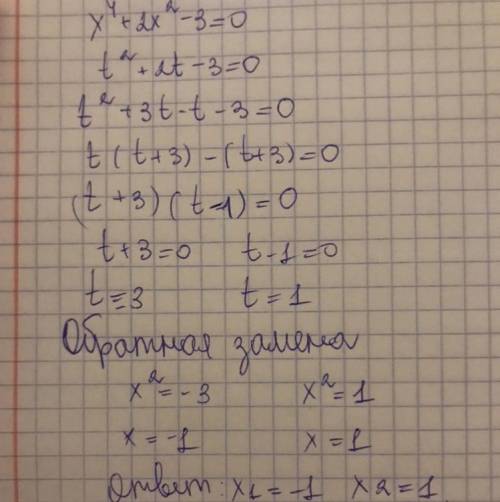 x⁴+2x²-3=0
t²+2t-3=0
t²+3t-t-3=0
t(t+3)-(t+3)=0
(t+3)(t-1)=0
t+3=0 t-1=0
t=-3 t=1
Обратная замена
x²=-3 x²=1
x=-1 x=1
Ответ: x1=-1 x2=1